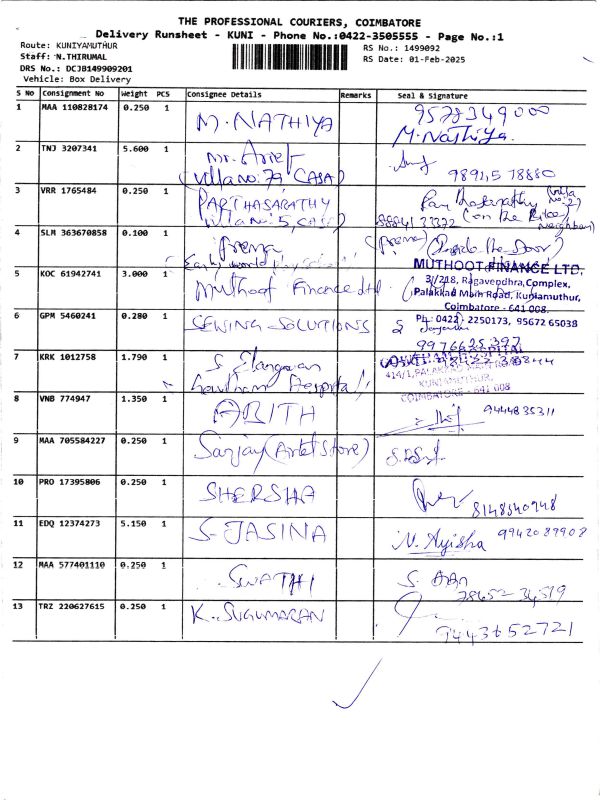 THE PROFESSIONAL COURIERS, COIMBATORE
Delivery Runsheet - KUNI - Phone No.:0422-3505555 - Page No.:1
Route: KUNIYAMUTHUR
RS No.: 1499092
Staff: N.THIRUMAL
RS Date: 01-Feb-2025
DRS No.: DCJB149909201
Vehicle: Box Delivery
S No Consignment No Weight PCS Consignee Details Remarks Seal & Signature
1 MAA 110828174 0.250 1 M. NATHIYA 9578349000
M. Nathiya.
2 TNJ 3207341 5.600 1 Mr.
(Villa no: 79 CASA) 78880
3 VRR 1765484 0.250 1 PARTHASARATHY
4 SLM 363670858 0.100 1 Prema (Prema)
5 KOC 61942741 3.000 1 Muthoot Finance Ltd MUTHOOT FINANCE LTD.
3/218, Ragavendhra,Complex,
Palakkad Main Road, Kuniamuthur,
Coimbatore - 641 008.
Ph: 0422 - 2250173, 95672 65038
6 GPM 5460241 0.280 1 SEWING SOLUTIONS
7 KRK 1012758 1.790 1 S. Elangovan
(Gowtham Hospital)
KUNIAMUTHUR,
COIMBATORE - 641 008
8 VNB 774947 1.350 1 ABITH 9444835311
9 MAA 705584227 0.250 1 Sanjay
10 PRO 17395806 0.250 1 SHERSHA 8148540948
11 EDQ 12374273 5.150 1 S. JASINA M. Ayisha 9942089908
12 MAA 577401110 0.250 1 SWATHI
13 TRZ 220627615 0.250 1 K. SUGUMARAN 9443652721